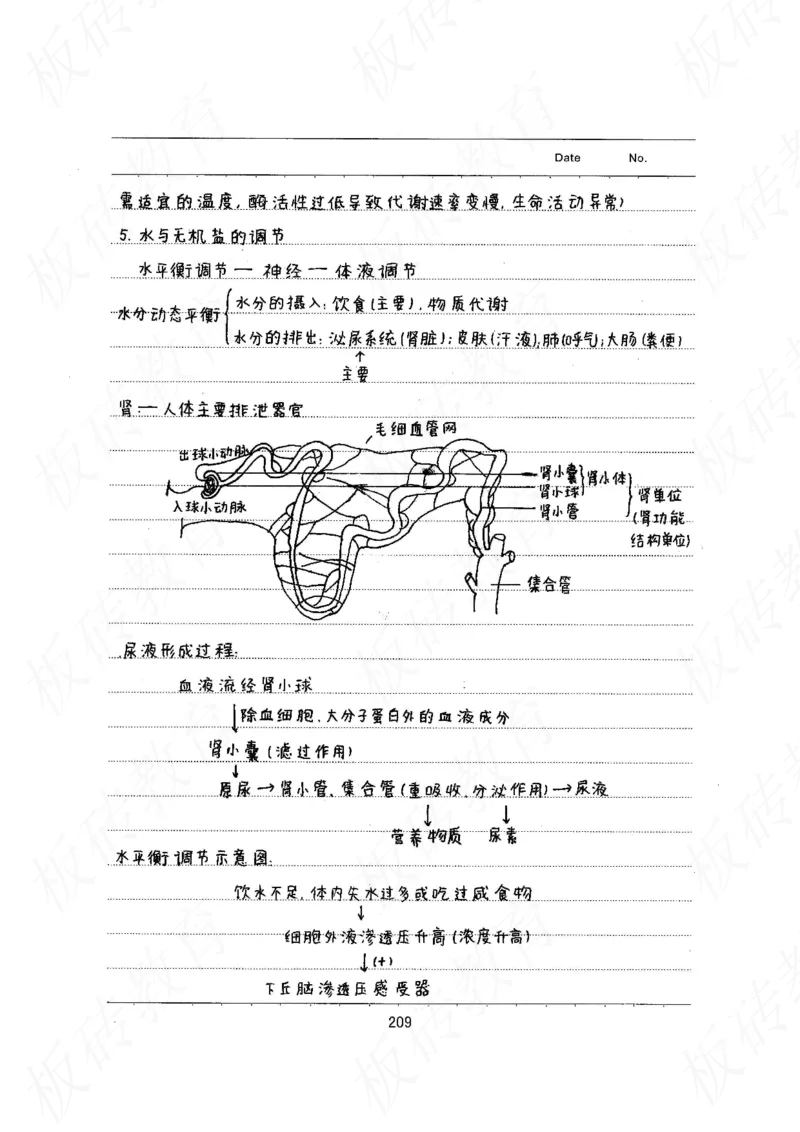 Date No.
需适宜的温度，酶活性过低导致代谢速率变慢，生命活动异常)
5. 水与无机盐的调节
水平衡调节 — 神经 — 体液调节
水分动态平衡
水分的摄入：饮食(主要)，物质代谢
水分的排出：泌尿系统(肾脏)；皮肤(汗液)，肺(呼气)，大肠(粪便)
↑
主要
肾：— 人体主要排泄器官
毛细血管网
出球小动脉
入球小动脉
肾小囊
肾小球
肾小体
肾小管
肾单位
(肾功能
结构单位)
集合管
尿液形成过程：
血液流经肾小球
↓除血细胞、大分子蛋白外的血液成分
肾小囊(滤过作用)
↓
原尿→肾小管、集合管(重吸收、分泌作用)→尿液
↓ ↓
营养物质 尿素
水平衡调节示意图：
饮水不足，体内失水过多或吃过咸食物
↓
细胞外液渗透压升高(浓度升高)
↓(+)
下丘脑渗透压感受器
209
板砖教育